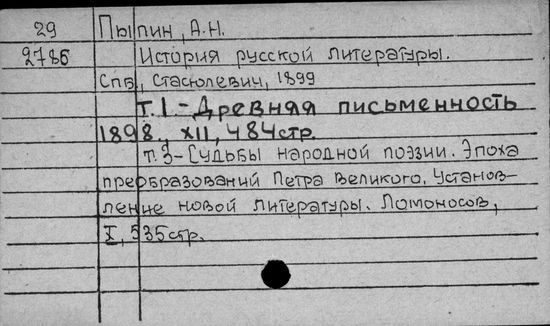 29 Пыпин, А.Н.
2786 История русской литературы.
Спб, Стасюлевич, 1899
т.1.-Древняя письменность
1898., XII, 484стр.
т.3-Судьбы народной поэзии. Эпоха
преобразований Петра Великого. Установ-
ление новой литературы. Ломоносов,
X, 535стр.